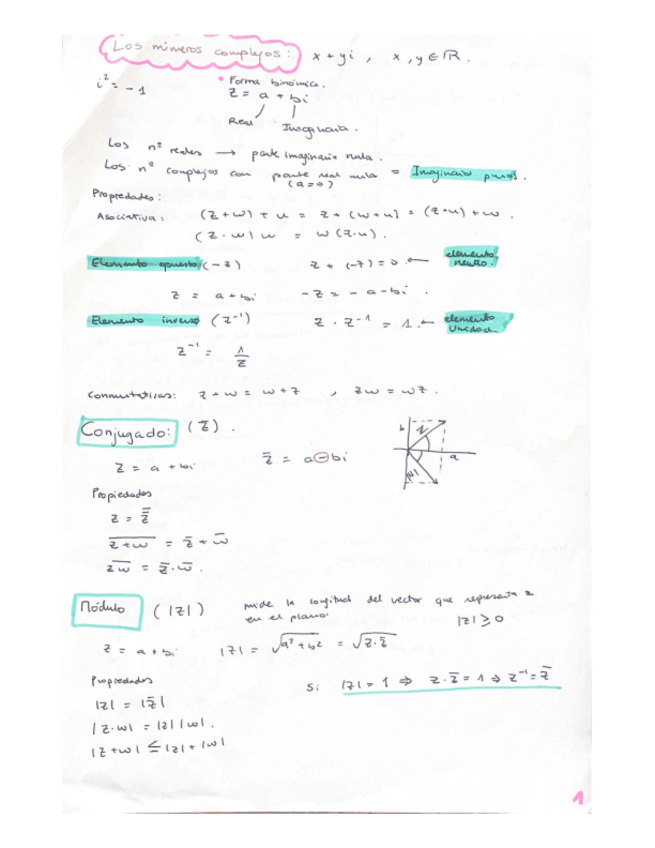 Los números complejos: x + yi , x , y ∈ ℝ .
i² = -1
• Forma binómica.
z = a + bi
Real Imaginaria.
Los nº reales → parte imaginaria nula.
Los nº complejos con parte real nula = Imaginarios puros.
(a=0)
Propiedades:
Asociativa: (z+w) + u = z + (w+u) = (z+u) + w .
(z·w) u = w (z·u).
Elemento opuesto (-z) z + (-z) = 0 ← elemento neutro.
z = a + bi -z = - a - bi .
Elemento inverso (z⁻¹) z · z⁻¹ = 1 ← elemento Unidad.
z⁻¹ = 1/z
Conmutativas: z + w = w + z , zw = wz .
Conjugado: (z̅) .
z = a + bi z̅ = a - bi
b z a z̅
Propiedades
z = z̿
\overline{z+w} = z̅ + w̅
\overline{zw} = z̅ · w̅ .
Módulo (|z|) mide la longitud del vector que representa z
en el plano. |z| ≥ 0
z = a + bi |z| = √(a² + b²) = √(z·z̅)
Propiedades Si |z| = 1 ⇒ z · z̅ = 1 ⇒ z⁻¹ = z̅
|z| = |z̅|
|z·w| = |z| |w| .
|z+w| ≤ |z| + |w|
1